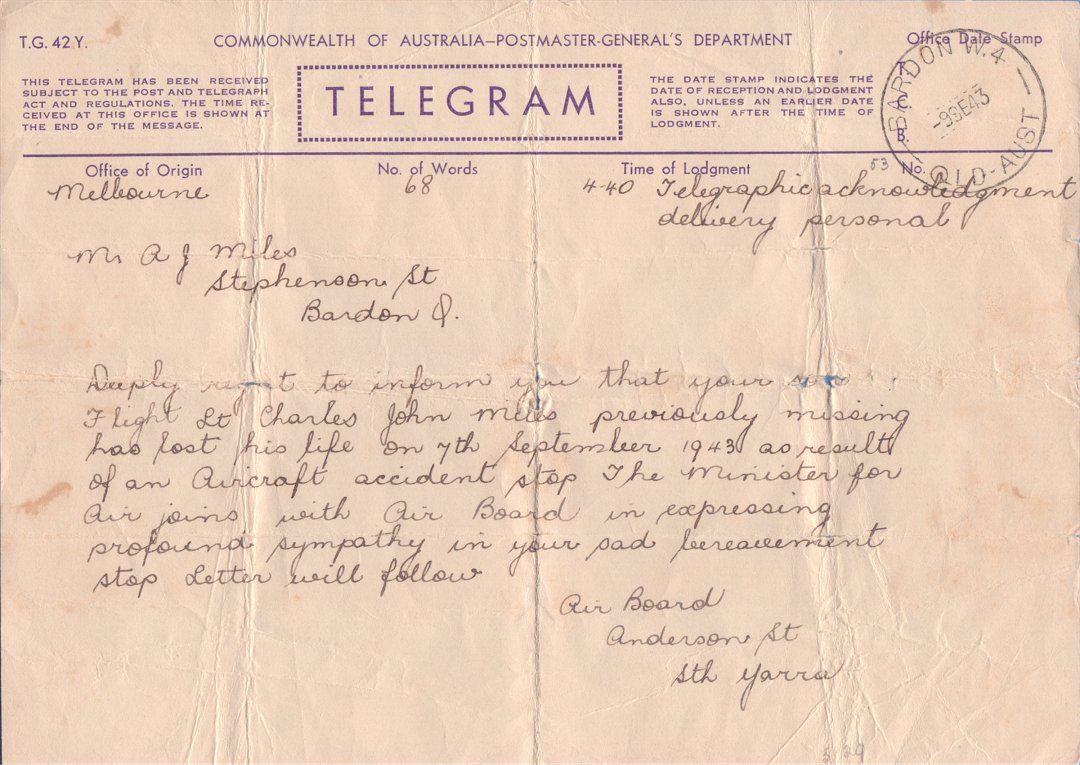 T.G. 42 Y.
COMMONWEALTH OF AUSTRALIA—POSTMASTER-GENERAL'S DEPARTMENT
Office Date Stamp
THIS TELEGRAM HAS BEEN RECEIVED
SUBJECT TO THE POST AND TELEGRAPH
ACT AND REGULATIONS. THE TIME RE-
CEIVED AT THIS OFFICE IS SHOWN AT
THE END OF THE MESSAGE.
TELEGRAM
THE DATE STAMP INDICATES THE
DATE OF RECEPTION AND LODGMENT
ALSO, UNLESS AN EARLIER DATE
IS SHOWN AFTER THE TIME OF
LODGMENT.
T.
C.
B.
BARDON W.4
-9SE43
QLD-AUST
Office of Origin
No. of Words
Time of Lodgment
53 No.
Melbourne
68
4-40 Telegraphic acknowledgment
delivery personal
Mr A J Miles
Stephenson St
Bardon Q.
Deeply regret to inform you that your son
Flight Lt Charles John Miles previously missing
has lost his life on 7th September 1943 as result
of an Aircraft accident stop The Minister for
Air joins with Air Board in expressing
profound sympathy in your sad bereavement
stop Letter will follow
Air Board
Anderson St
Sth Yarra